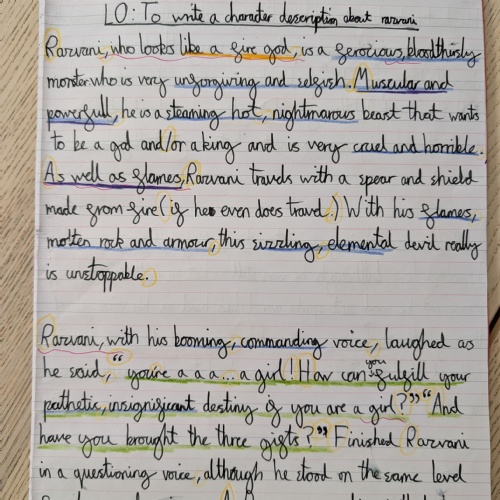 LO: To write a character description about rarvani
Rarvani, who looks like a fire god, is a ferocious, bloodthirsty
monster who is very unforgiving and selfish. Muscular and
powerfull, he is a steaming hot, nightmarous beast that wants
to be a god and/or a king and is very cruel and horrible.
As well as flames, Rarvani travels with a spear and shield
made from fire (if he even does travel.) With his flames,
molten rock and armour, this sizzling, elemental devil really
is unstoppable.
Rarvani, with his booming, commanding voice, laughed as
he said, "you're a a a... a girl! How can you fulfill your
pathetic, insignificant destiny if you are a girl?" "And
have you brought the three gifts?" Finished Rarvani
in a questioning voice, although he stood on the same level